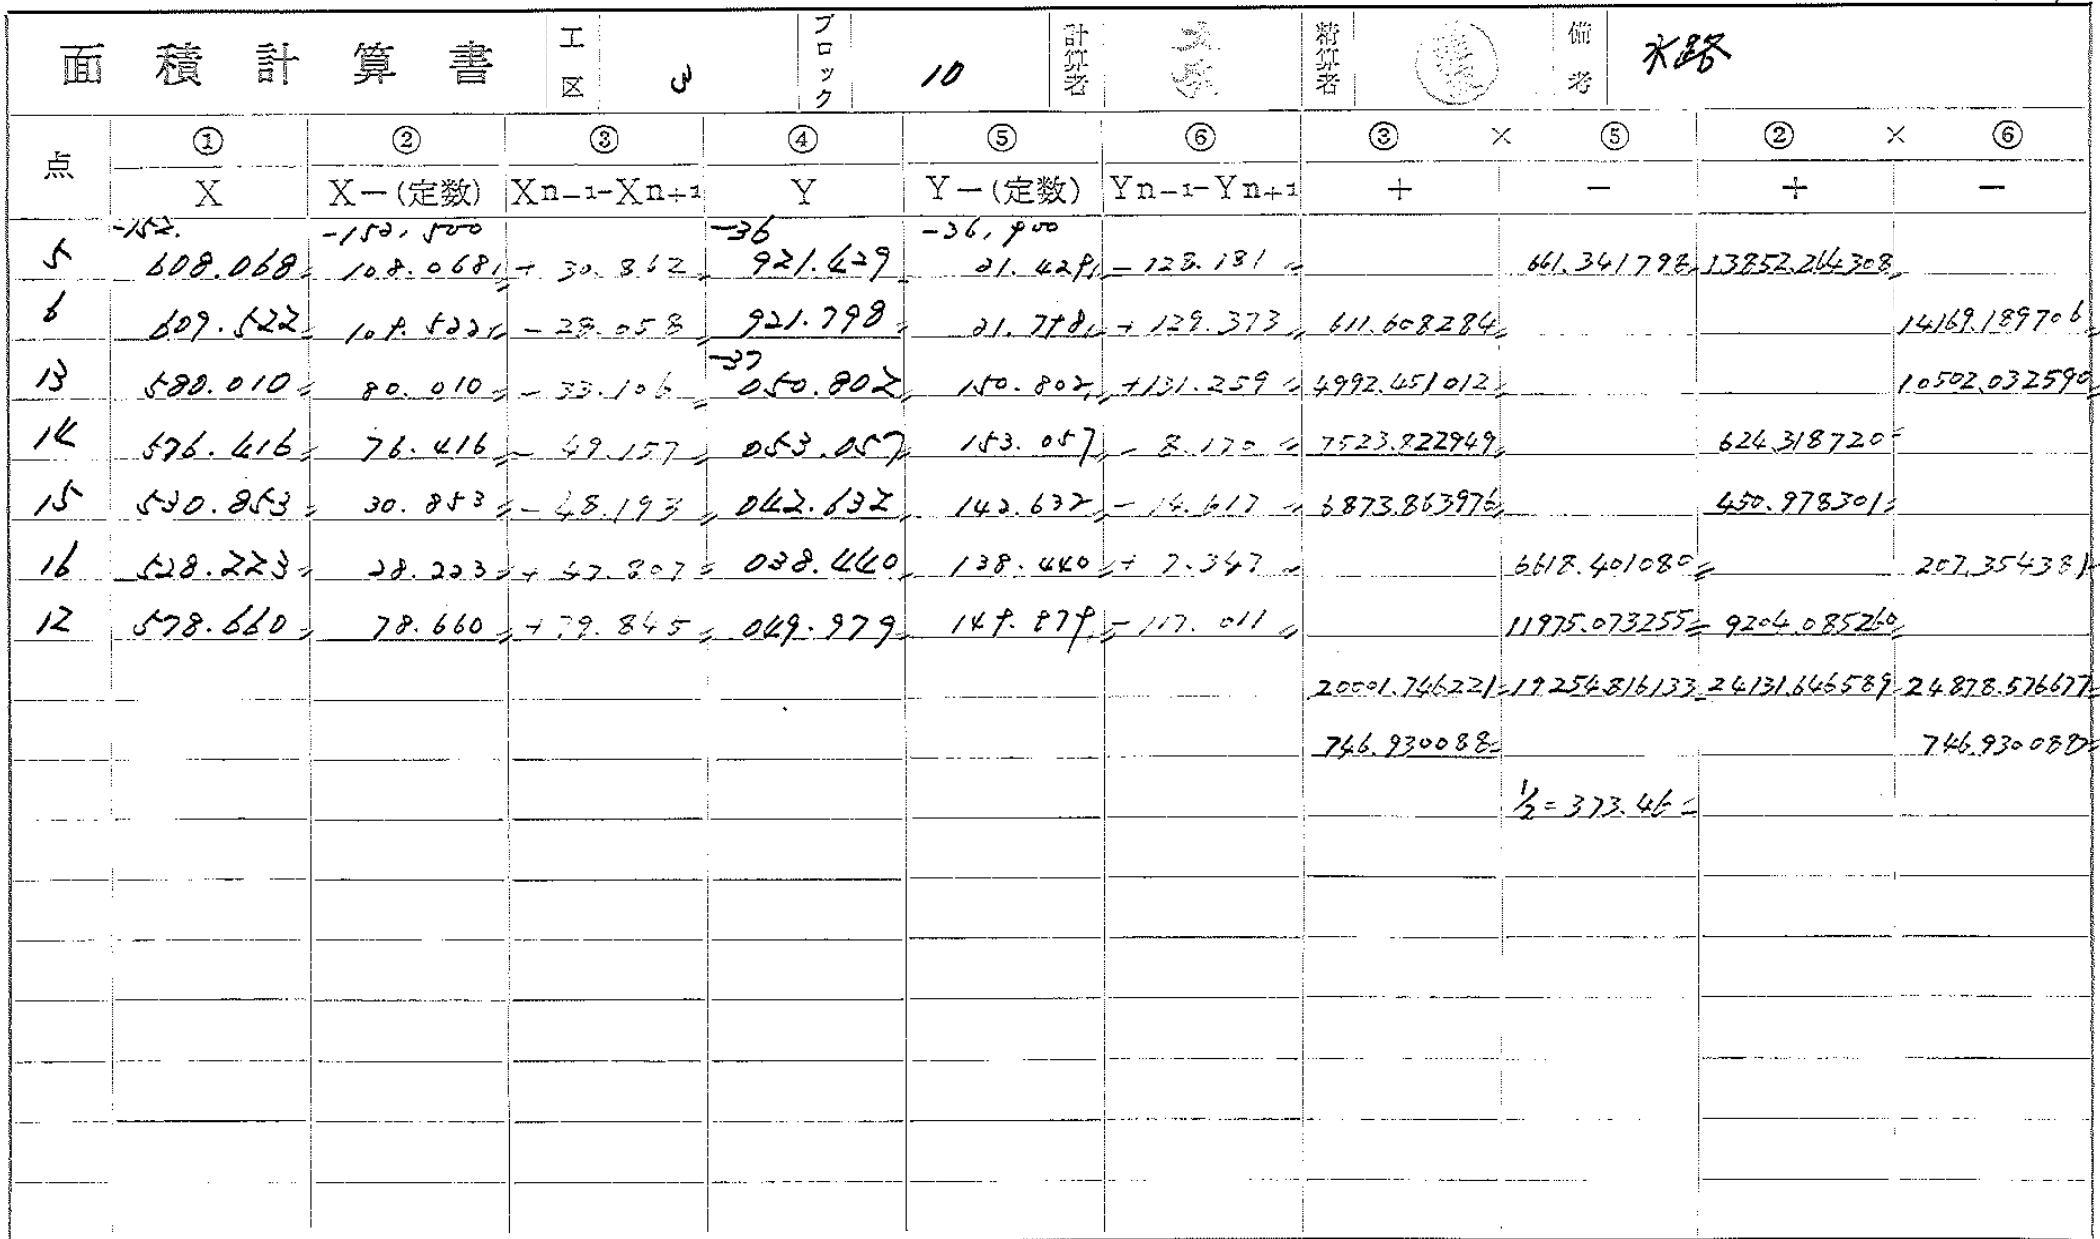 面積計算書 工区 3 ブロック 10 計算者 精算者 備考 水路
点 ① ② ③ ④ ⑤ ⑥ ③ × ⑤ ② × ⑥
X X-(定数) Xn-1-Xn+1 Y Y-(定数) Yn-1-Yn+1 + - + -
-152. -152,500 -36 -36,900
5 608.068 108.068 + 30.862 921.429 21.429 - 128.181 661.341798 13852.264308
6 609.522 109.522 - 28.058 921.798 21.798 + 129.373 611.608284 14169.189706
-37
13 580.010 80.010 - 33.106 050.802 150.802 +131.259 4992.451012 10502.032590
14 576.416 76.416 - 49.157 053.057 153.057 - 8.170 7523.822949 624.318720
15 530.853 30.853 - 48.193 042.632 142.632 - 14.617 6873.863976 450.978301
16 528.223 28.223 + 47.807 038.440 138.440 + 7.347 6618.401080 207.354381
12 578.660 78.660 + 79.845 049.979 149.979 - 117.011 11975.073255 9204.085260
20001.746221 19254.816133 24131.646589 24878.576677
746.930088 746.930088
1/2 = 373.46